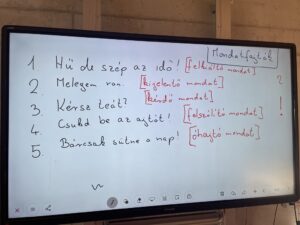 Mondatfajták
1 Hű de szép az idő! [felkiáltó mondat]
2. Melegem van. [kijelentő mondat] ?
3. Kérsz teát? [kérdő mondat] !
4. Csukd be az ajtót! [felszólító mondat]
5. Bárcsak sütne a nap! [óhajtó mondat]